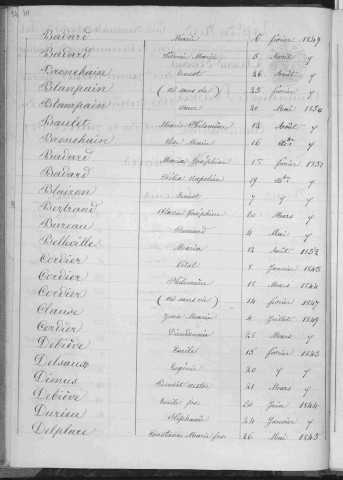 Badart Marie 6 février 1849
Badart Sidonie Marie 5 Avril y
Bronchain Ernest 26 Août y
Blanpain (né sans vie) 25 février y
Blampain Omer 20 Mai 1850
Baulet Marie Philomène 12 Août y
Bronchain Élie Marie 16 do y
Badard Maria Joséphine 15 février 1851
Badard Félix Napoléon 19 do y
Blairon Ernest y y y
Bertrand Flavie Joséphine 20 Mars y
Bureau 4 Mai y
Belloille Maria 12 Août 1852
Cordier Vital 5 Janvier 1843
Cordier Philomène 18 Mars 1844
Cordier (né sans vie) 14 février 1847
Clause Jean Marie 4 Juillet 1849
Cordier Dieudonnée 25 Mars y
Debiève Emile 15 février 1843
Delsaux Eugénie 20 y y
Dimus Benoit 21 Mars y
Debiève Emile Jos. 20 Juin 1844
Durieu Stéphanie 24 Janvier y
Delplace Constance Marie Jos 26 Mai 1845